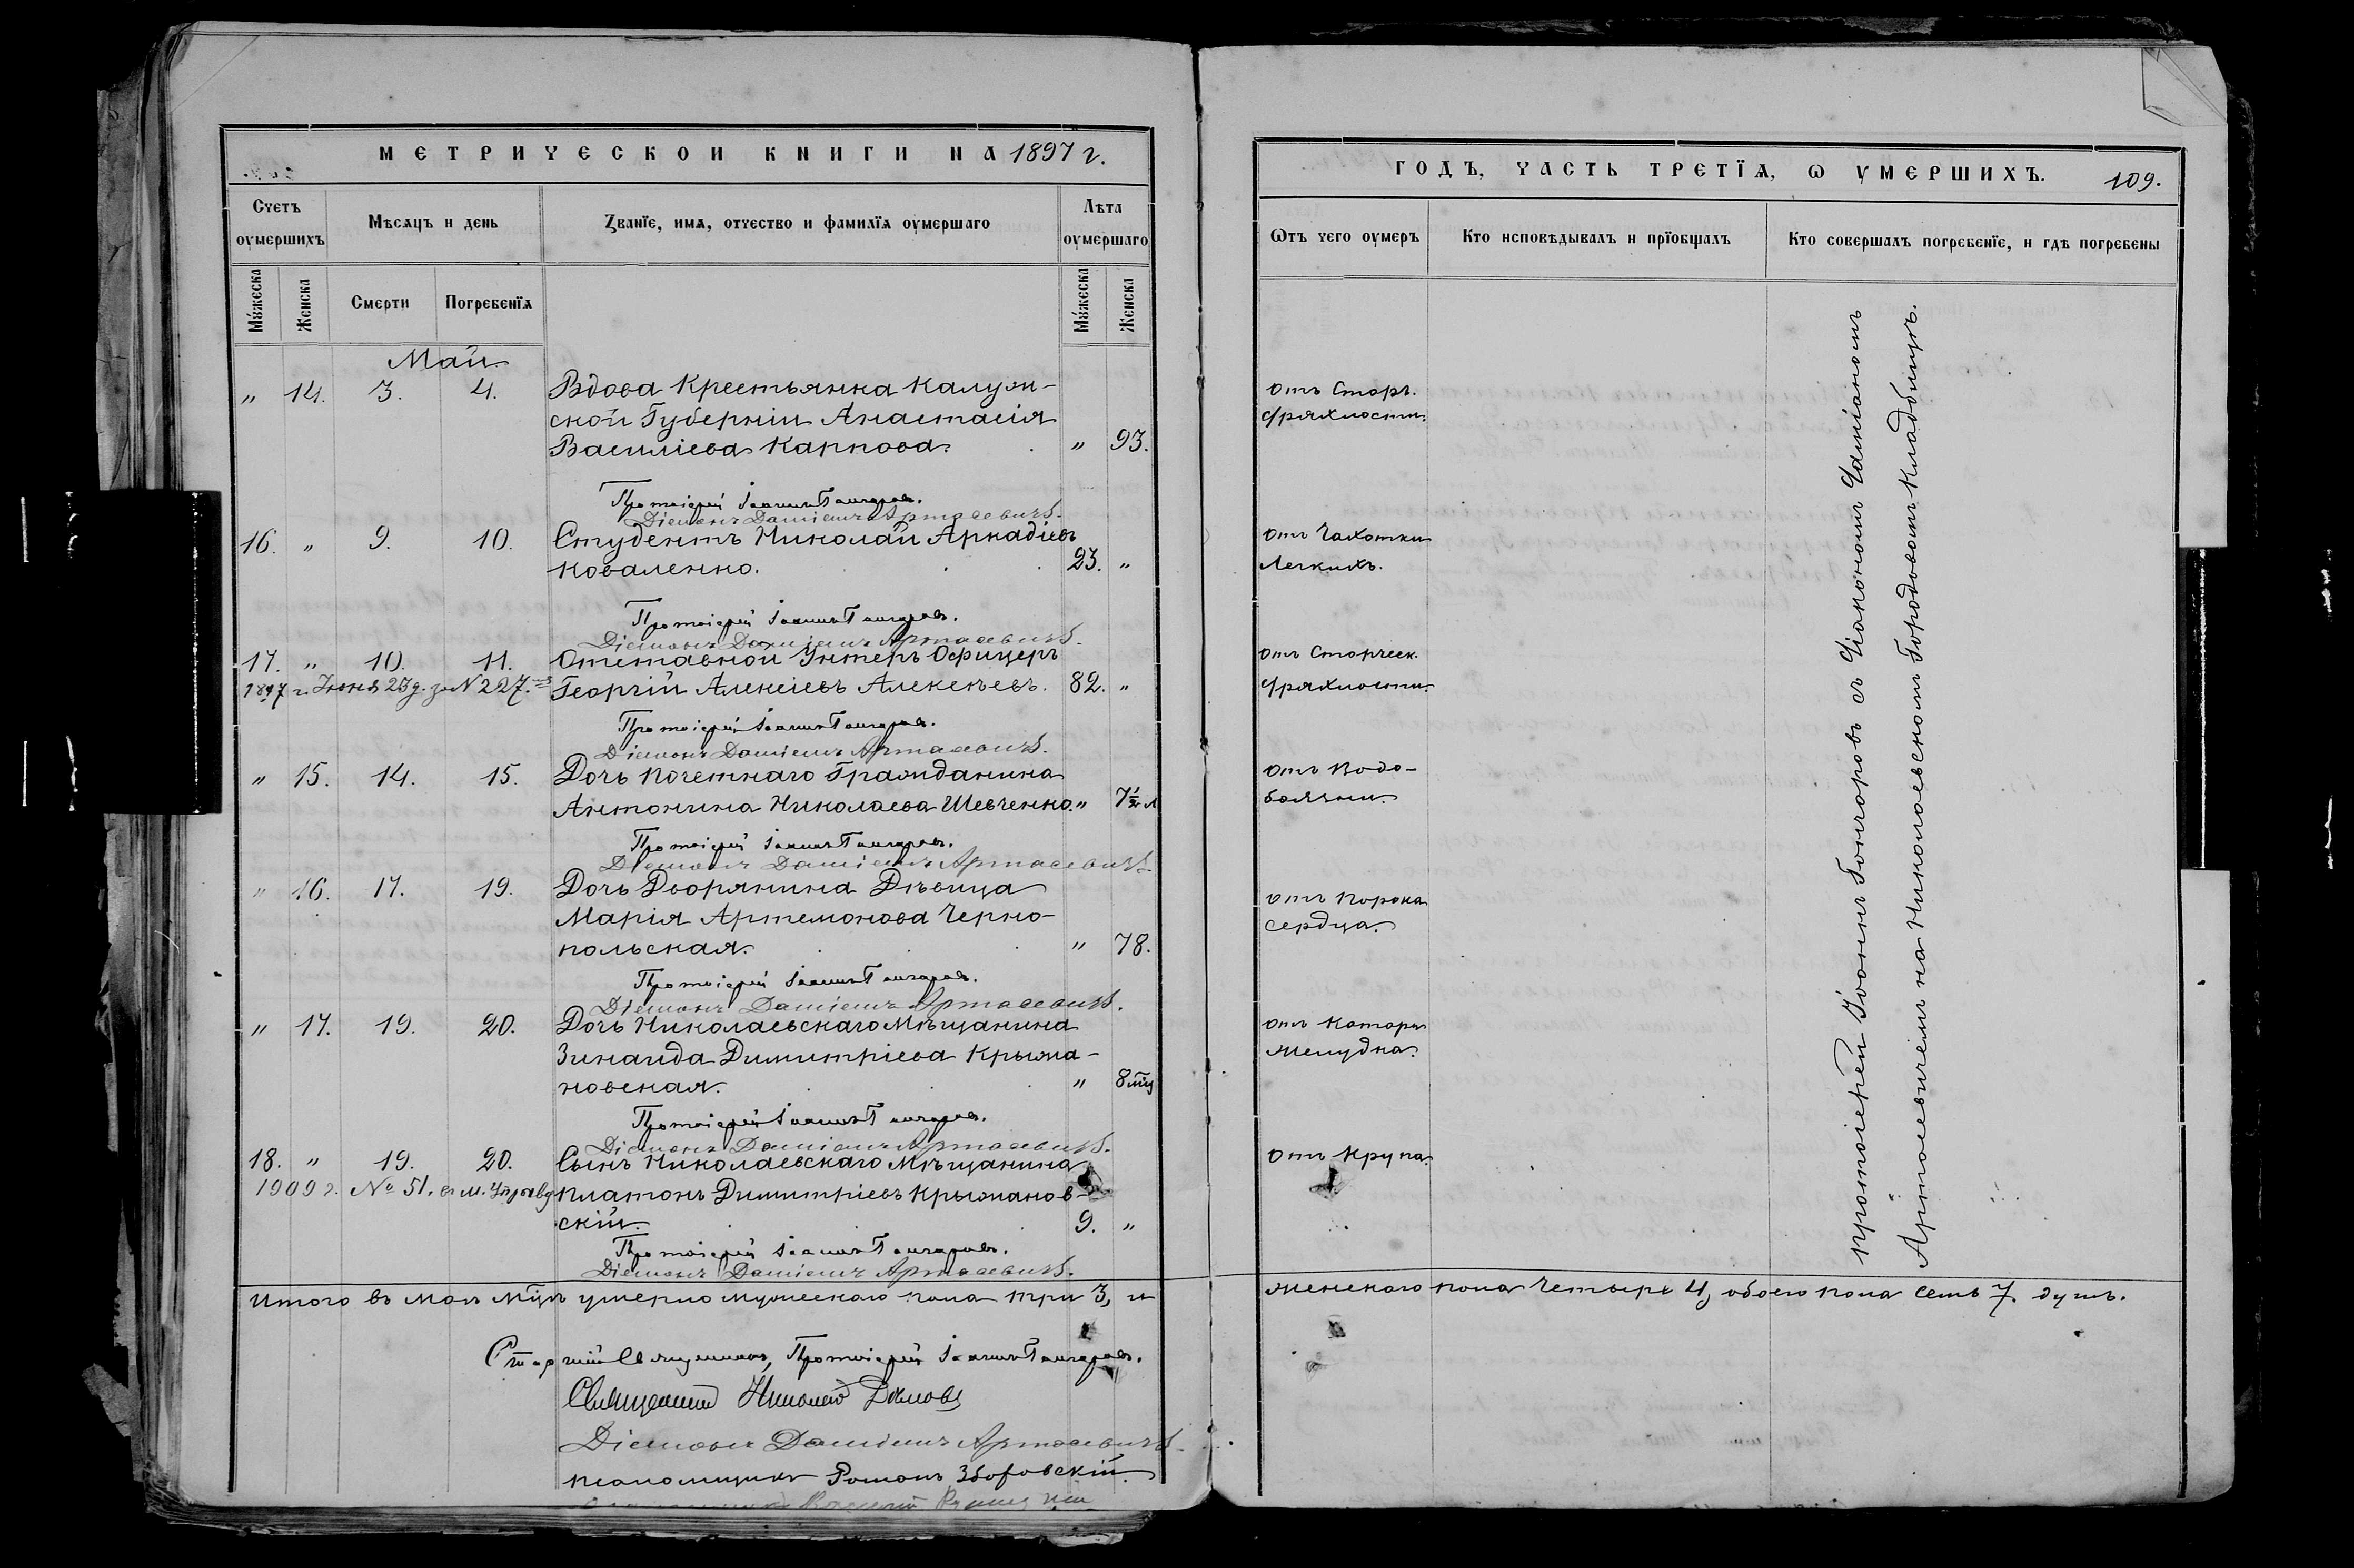 МЕТРИЧЕСКОЙ КНИГИ НА 1897 г.
Счетъ оумершихъ
Мѣсяцъ и день
Званїе, имя, отчество и фамилїя оумершаго
Лѣта оумершаго
Мꙋжеска
Женска
Смерти
Погребенїя
Мꙋжеска
Женска
Май.
„ 14. 3. 4. Вдова Крестьянка Калуж-
ской Губерніи Анастасія
Василіева Карпова. „ 93.
Протоіерей Іоаннъ Гончаровъ.
Діаконъ Даміанъ Артасевичъ.
16. „ 9. 10. Студентъ Николай Аркадіевъ
Коваленко. 23. „
Протоіерей Іоаннъ Гончаровъ.
Діаконъ Даміанъ Артасевичъ.
17. „ 10. 11. Отставной Унтеръ Офицеръ
1897 г. Іюня 23 д. за № 227. Георгій Алексіевъ Алексѣевъ. 82. „
Протоіерей Іоаннъ Гончаровъ.
Діаконъ Даміанъ Артасевичъ.
„ 15. 14. 15. Дочь почетнаго Гражданина
Антонина Николаева Шевченко. „ 7½ л
Протоіерей Іоаннъ Гончаровъ.
Діаконъ Даміанъ Артасевичъ.
„ 16. 17. 19. Дочь Дворянина Дѣвица
Марія Артемонова Черно-
польская. „ 78.
Протоіерей Іоаннъ Гончаровъ.
Діаконъ Даміанъ Артасевичъ.
„ 17. 19. 20. Дочь Николаевскаго Мѣщанина
Зинаида Димитріева Крыжа-
новская. „ 8 мц
Протоіерей Іоаннъ Гончаровъ.
Діаконъ Даміанъ Артасевичъ.
18. „ 19. 20. Сынъ Николаевскаго Мѣщанина
1909 г. № 51. в м. Управу Платонъ Димитріевъ Крыжанов-
скій. 9. „
Протоіерей Іоаннъ Гончаровъ.
Діаконъ Даміанъ Артасевичъ.
Итого въ маѣ мцѣ умерло мужескаго пола три 3, и
Старшій Священникъ, Протоіерей Іоаннъ Гончаровъ.
Священникъ Николай
Діаконъ Даміанъ Артасевичъ.
псаломщикъ Романъ Зборовскій
ГОДЪ, ЧАСТЬ ТРЕТЇЯ, Ѡ УМЕРШИХЪ. 109.
Ѡтъ чего оумеръ
Кто исповѣдывалъ и прїобщалъ
Кто совершалъ погребенїе, и гдѣ погребены
отъ Старч.
дряхлости.
отъ Чахотки
Легкихъ.
отъ Старческ.
дряхлости.
отъ Водо-
боязни.
отъ Порока
сердца.
отъ Катара
желудка.
отъ Крупа.
протоіерей Іоаннъ Гончаровъ съ Діакономъ Даміаномъ
Артасевичемъ на Николаевскомъ Городовомъ Кладбищѣ.
женскаго пола четыре 4, обоего пола семь 7. душъ.